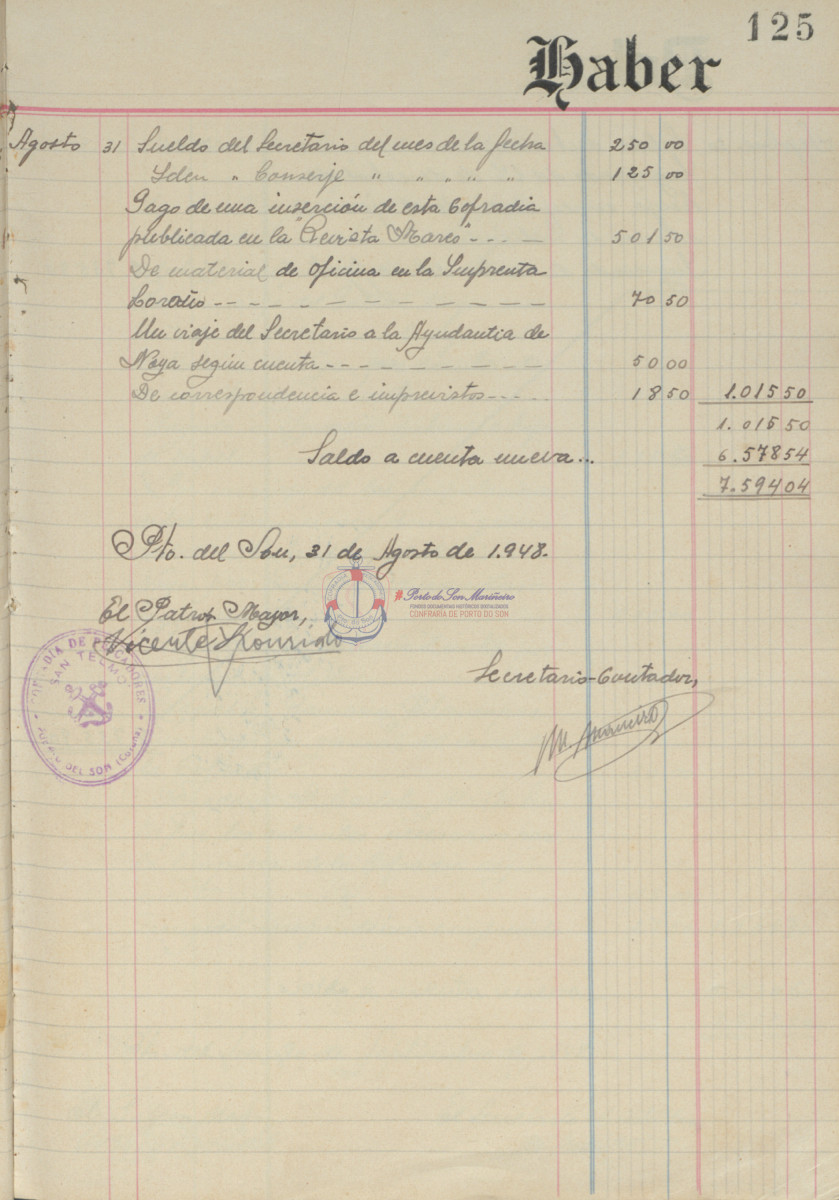 125
Haber
Agosto 31 Sueldo del Secretario del mes de la fecha 250 00
Iden " Conserje " " " " " 125 00
Pago de una inserción de esta Cofradia
publicada en la "Revista Mares" - - - - 501 50
De material de oficina en la Imprenta
Loroño - - - - - - - - - - 70 50
Un viaje del Secretario a la Ayudantia de
Noya según cuenta - - - - - - - - - 50 00
De correspondencia e imprevistos - - - - 18 50 1.015 50
1.015 50
Saldo a cuenta nueva... 6.578 54
7.594 04
Pto. del Son, 31 de Agosto de 1.948.
#Porto do Son Mariñeiro
FONDOS DOCUMENTAIS HISTÓRICOS DIXITALIZADOS
CONFRARÍA DE PORTO DO SON
El Patron Mayor,
Vicente
COFRADIA DE PESCADORES
SAN TELMO
PUERTO DEL SON (Coruña)
Secretario-Contador,